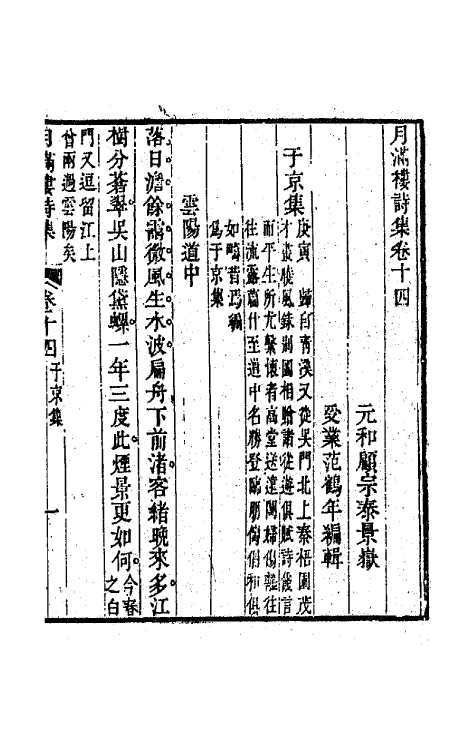 月滿樓詩集卷十四
元和顧宗泰景嶽
受業范鶴年編輯
于京集
庚寅 歸自青溪又從吳門北上秦梧園茂
才盡陵風錸則國相贈肅從遊俱賦詩後言
而平生所尤繫懷者高堂送遠閨
往流露篇什至道中名勝登臨朋儔倡和俱
如疇昔焉編
為于京集
雲陽道中
落日澹餘靄微風生水波扁舟下前渚客緒晚來多江
樹分蒼翠吳山隱黛螺一年三度此煙景更如何今春
之白
門又逗留江上
曾兩過雲陽矣
月滿樓詩集 卷十四 于京集 一